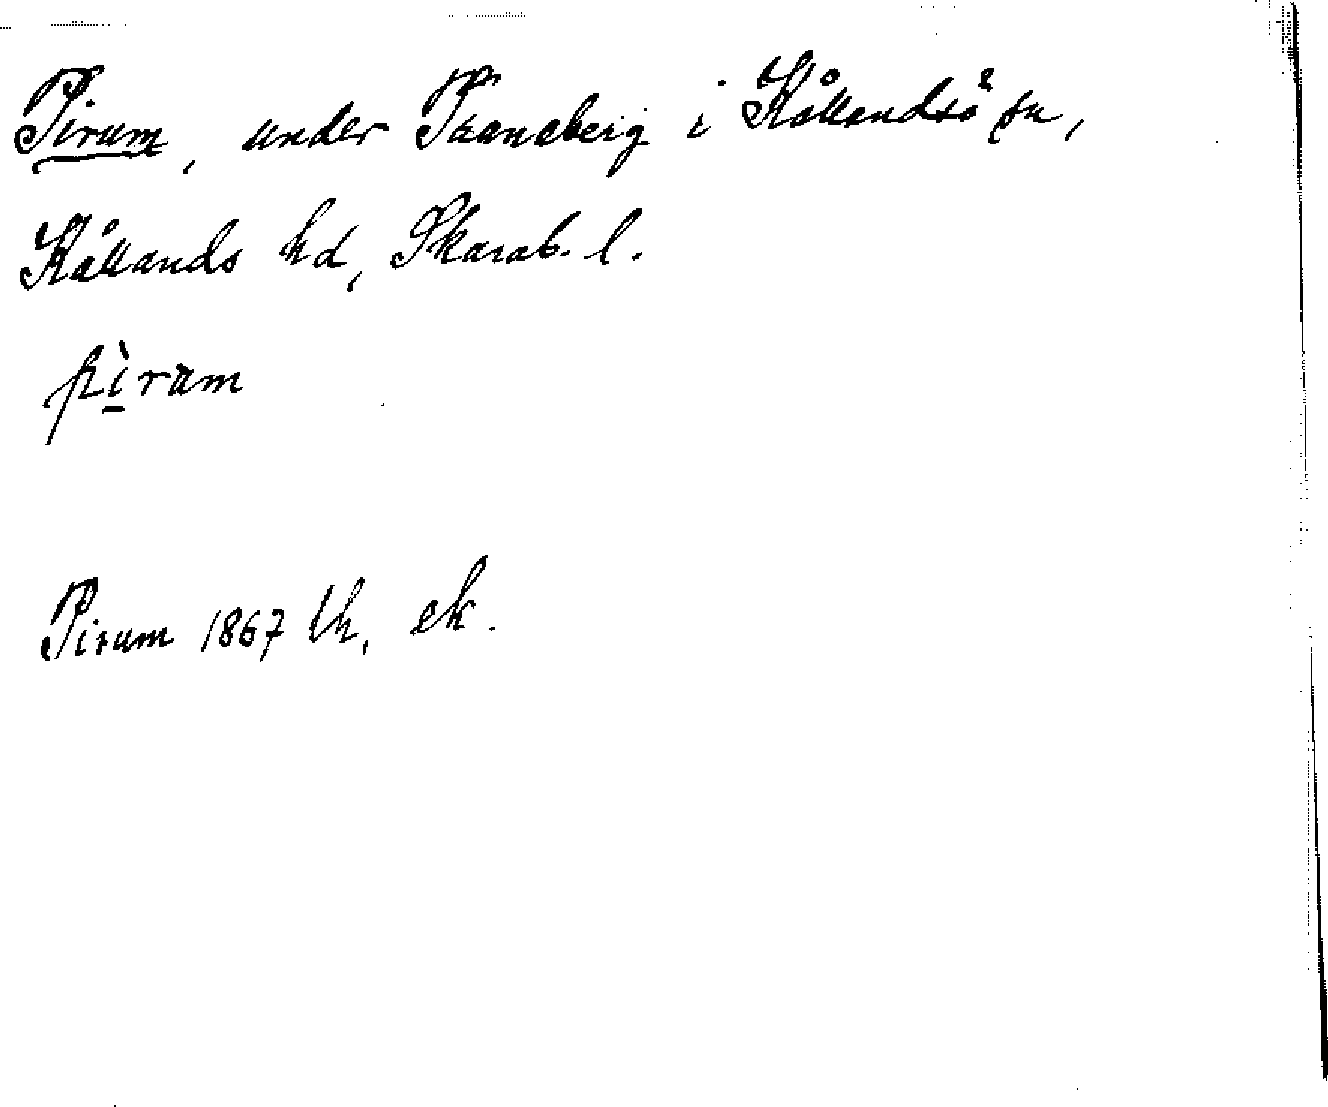 Pirum, under Traneberg i Kållandsö sn,
Kållands hd, Skarab. l.
pìram
Pirum 1867 Uh, ek.